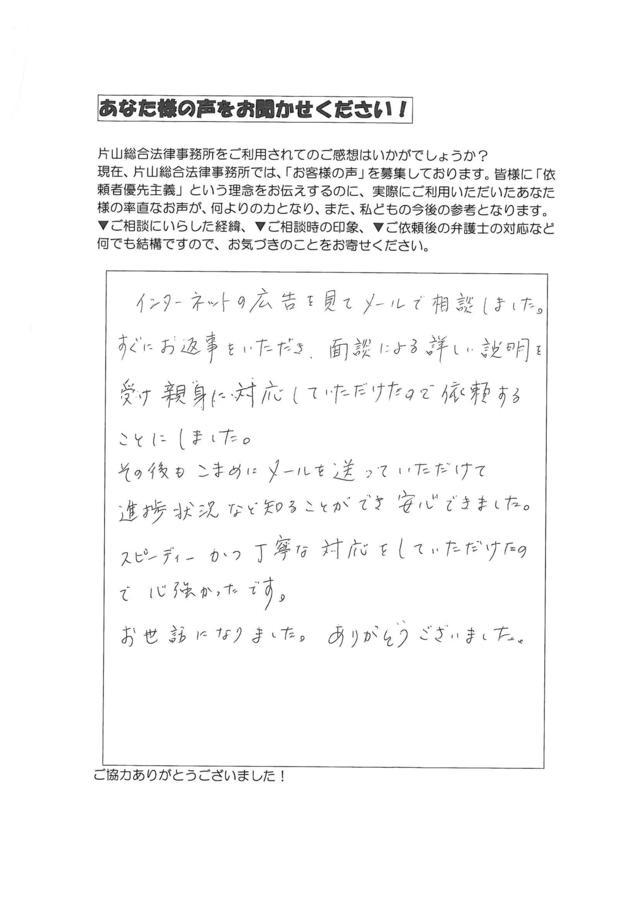 あなた様の声をお聞かせください！
片山総合法律事務所をご利用されてのご感想はいかがでしょうか？
現在、片山総合法律事務所では、「お客様の声」を募集しております。皆様に「依
頼者優先主義」という理念をお伝えするのに、実際にご利用いただいたあなた
様の率直なお声が、何よりの力となり、また、私どもの今後の参考となります。
▼ご相談にいらした経緯、▼ご相談時の印象、▼ご依頼後の弁護士の対応など
何でも結構ですので、お気づきのことをお寄せください。
インターネットの広告を見てメールで相談しました。
すぐにお返事をいただき、面談による詳しい説明を
受け親身に対応していただけたので依頼する
ことにしました。
その後もこまめにメールを送っていただけて
進捗状況など知ることができ安心できました。
スピーディーかつ丁寧な対応をしていただけたの
で心強かったです。
お世話になりました。ありがとうございました。
ご協力ありがとうございました！